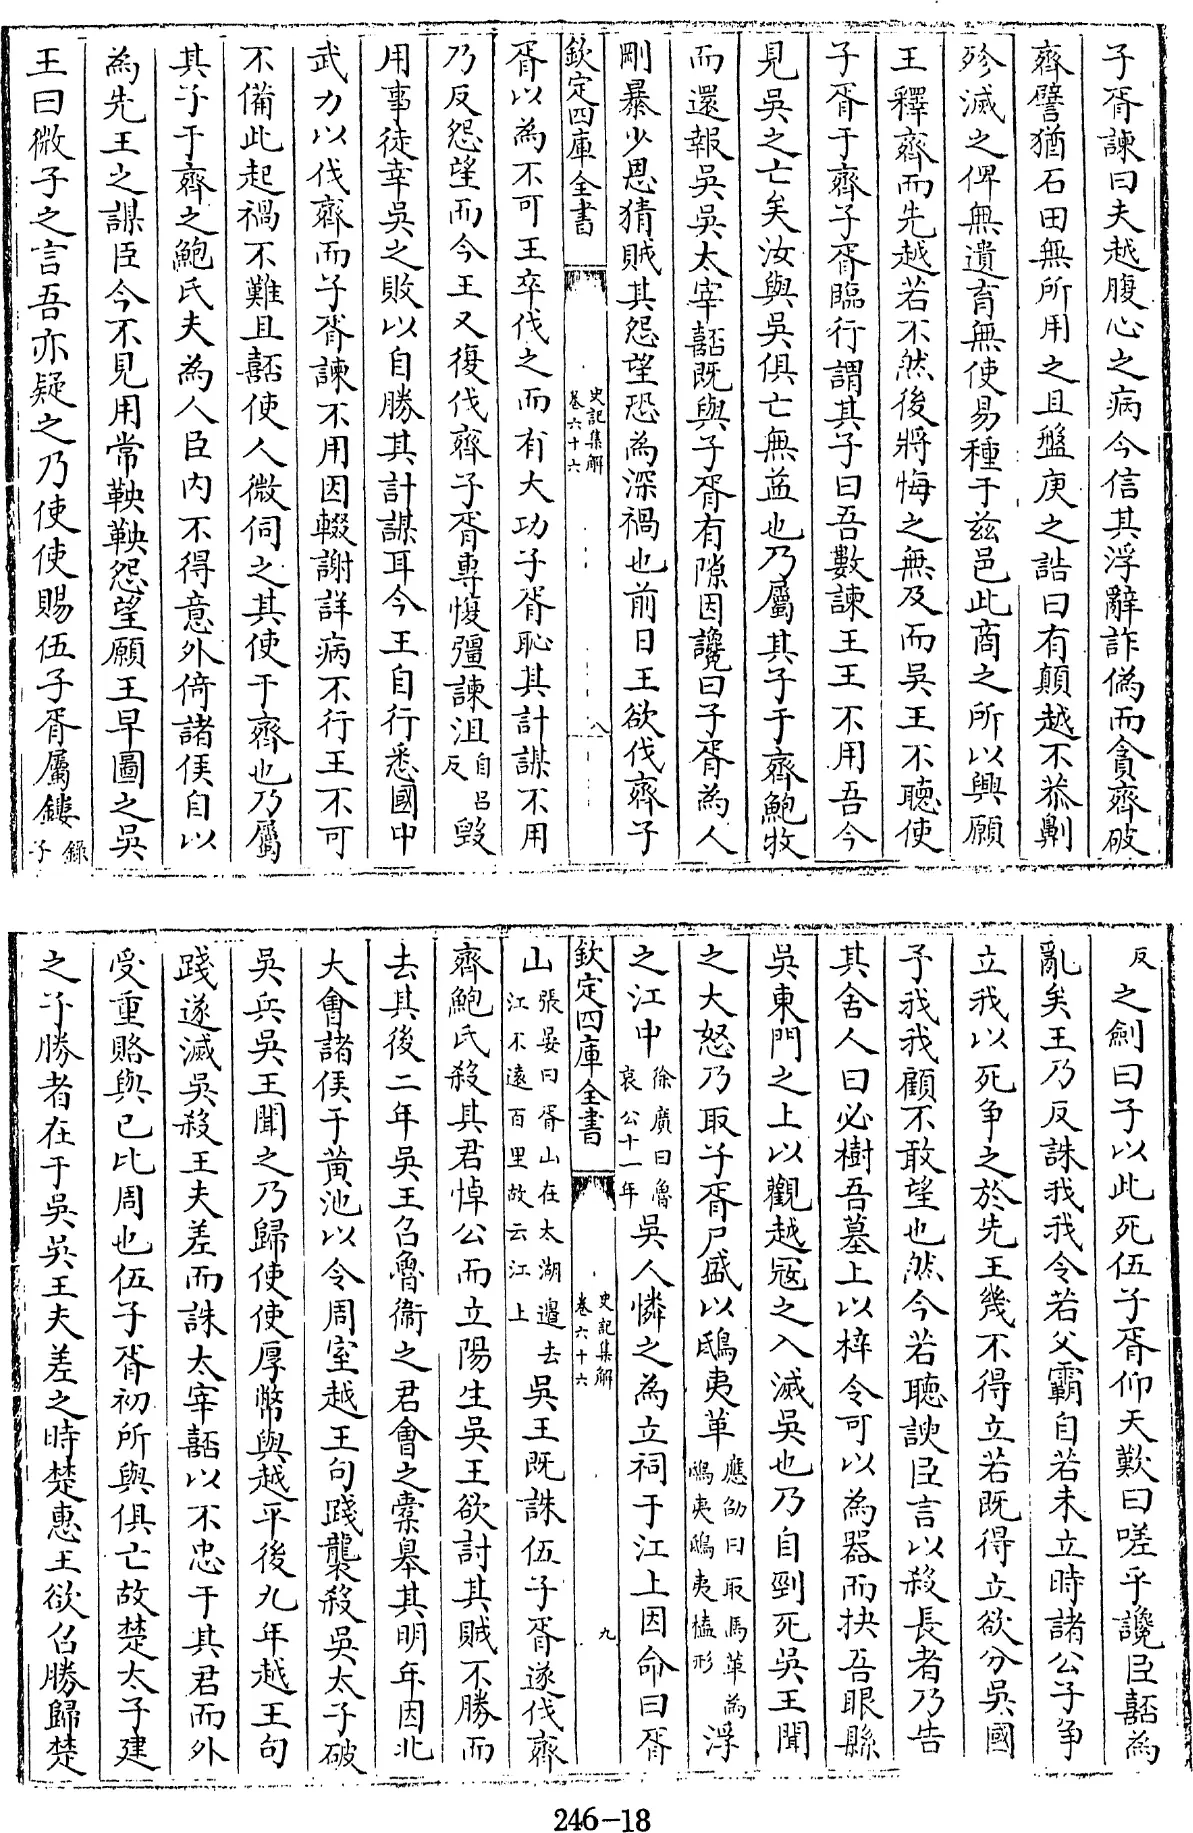 子胥諫曰夫越腹心之病今信其浮辭詐偽而貪齊破
齊譬猶石田無所用之且盤庚之誥曰有顛越不恭劓
殄滅之俾無遺育無使易種于兹邑此商之所以興願
王釋齊而先越若不然後將悔之無及而吳王不聽使
子胥于齊子胥臨行謂其子曰吾數諫王王不用吾今
見吳之亡矣汝與吳俱亡無益也乃屬其子于齊鮑牧
而還報吳吳太宰嚭既與子胥有隙因讒曰子胥為人
剛暴少恩猜賊其怨望恐為深禍也前日王欲伐齊子
欽定四庫全書
史記集解
卷六十六
八
胥以為不可王卒伐之而有大功子胥恥其計謀不用
乃反怨望而今王又復伐齊子胥專愎彊諫沮自呂反毀
用事徒幸吳之敗以自勝其計謀耳今王自行悉國中
武力以伐齊而子胥諫不用因輟謝詳病不行王不可
不備此起禍不難且嚭使人微伺之其使于齊也乃屬
其子于齊之鮑氏夫為人臣内不得意外倚諸侯自以
為先王之謀臣今不見用常鞅鞅怨望願王早圖之吳
王曰微子之言吾亦疑之乃使使賜伍子胥屬鏤錄于
反之劍曰子以此死伍子胥仰天歎曰嗟乎讒臣嚭為
亂矣王乃反誅我我令若父霸自若未立時諸公子爭
立我以死爭之於先王幾不得立若既得立欲分吳國
予我我顧不敢望也然今若聽諛臣言以殺長者乃告
其舍人曰必樹吾墓上以梓令可以為器而抉吾眼縣
吳東門之上以觀越寇之入滅吳也乃自剄死吳王聞
之大怒乃取子胥尸盛以鴟夷革應劭曰取馬革為鴟夷鴟夷榼形浮
之江中徐廣曰魯哀公十一年吳人憐之為立祠于江上因命曰胥
欽定四庫全書
史記集解
卷六十六
九
山張晏曰胥山在太湖邊去江不遠百里故云江上吳王既誅伍子胥遂伐齊
齊鮑氏殺其君悼公而立陽生吳王欲討其賊不勝而
去其後二年吳王召魯衛之君會之橐臯其明年因北
大會諸侯于黄池以令周室越王句踐襲殺吳太子破
吳兵吳王聞之乃歸使使厚幣與越平後九年越王句
踐遂滅吳殺王夫差而誅太宰嚭以不忠于其君而外
受重賂與已比周也伍子胥初所與俱亡故楚太子建
之子勝者在于吳吳王夫差之時楚惠王欲召勝歸楚
246-18